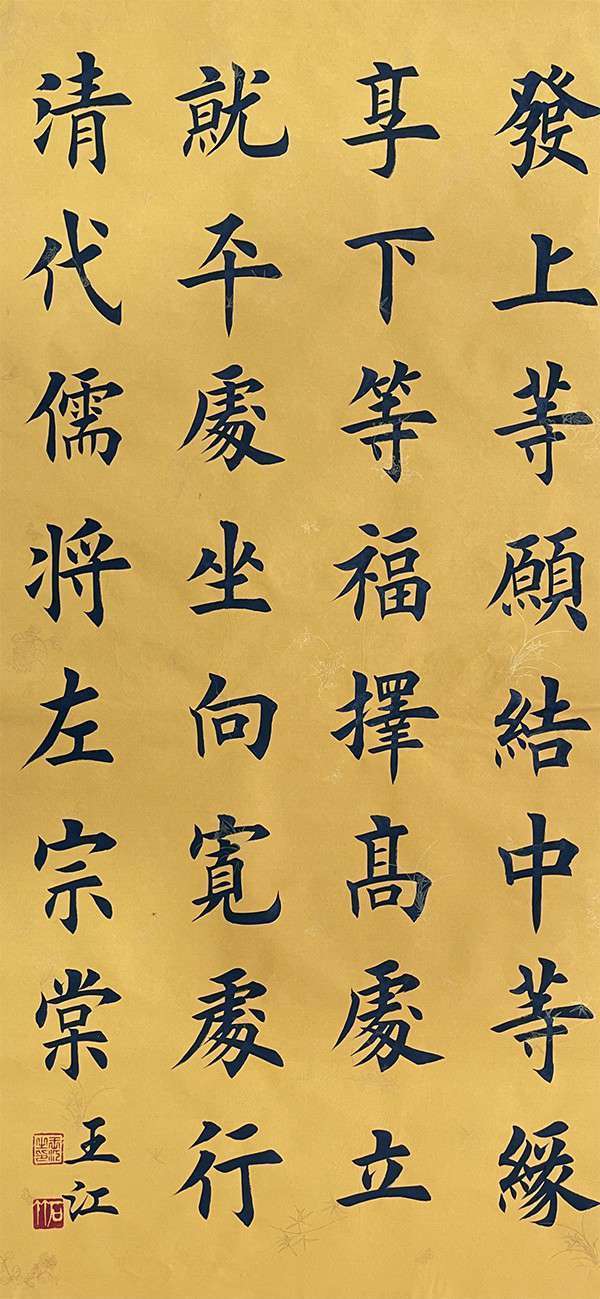 發上等願結中等緣
享下等福擇高處立
就平處坐向寬處行
清代儒將左宗棠
王江